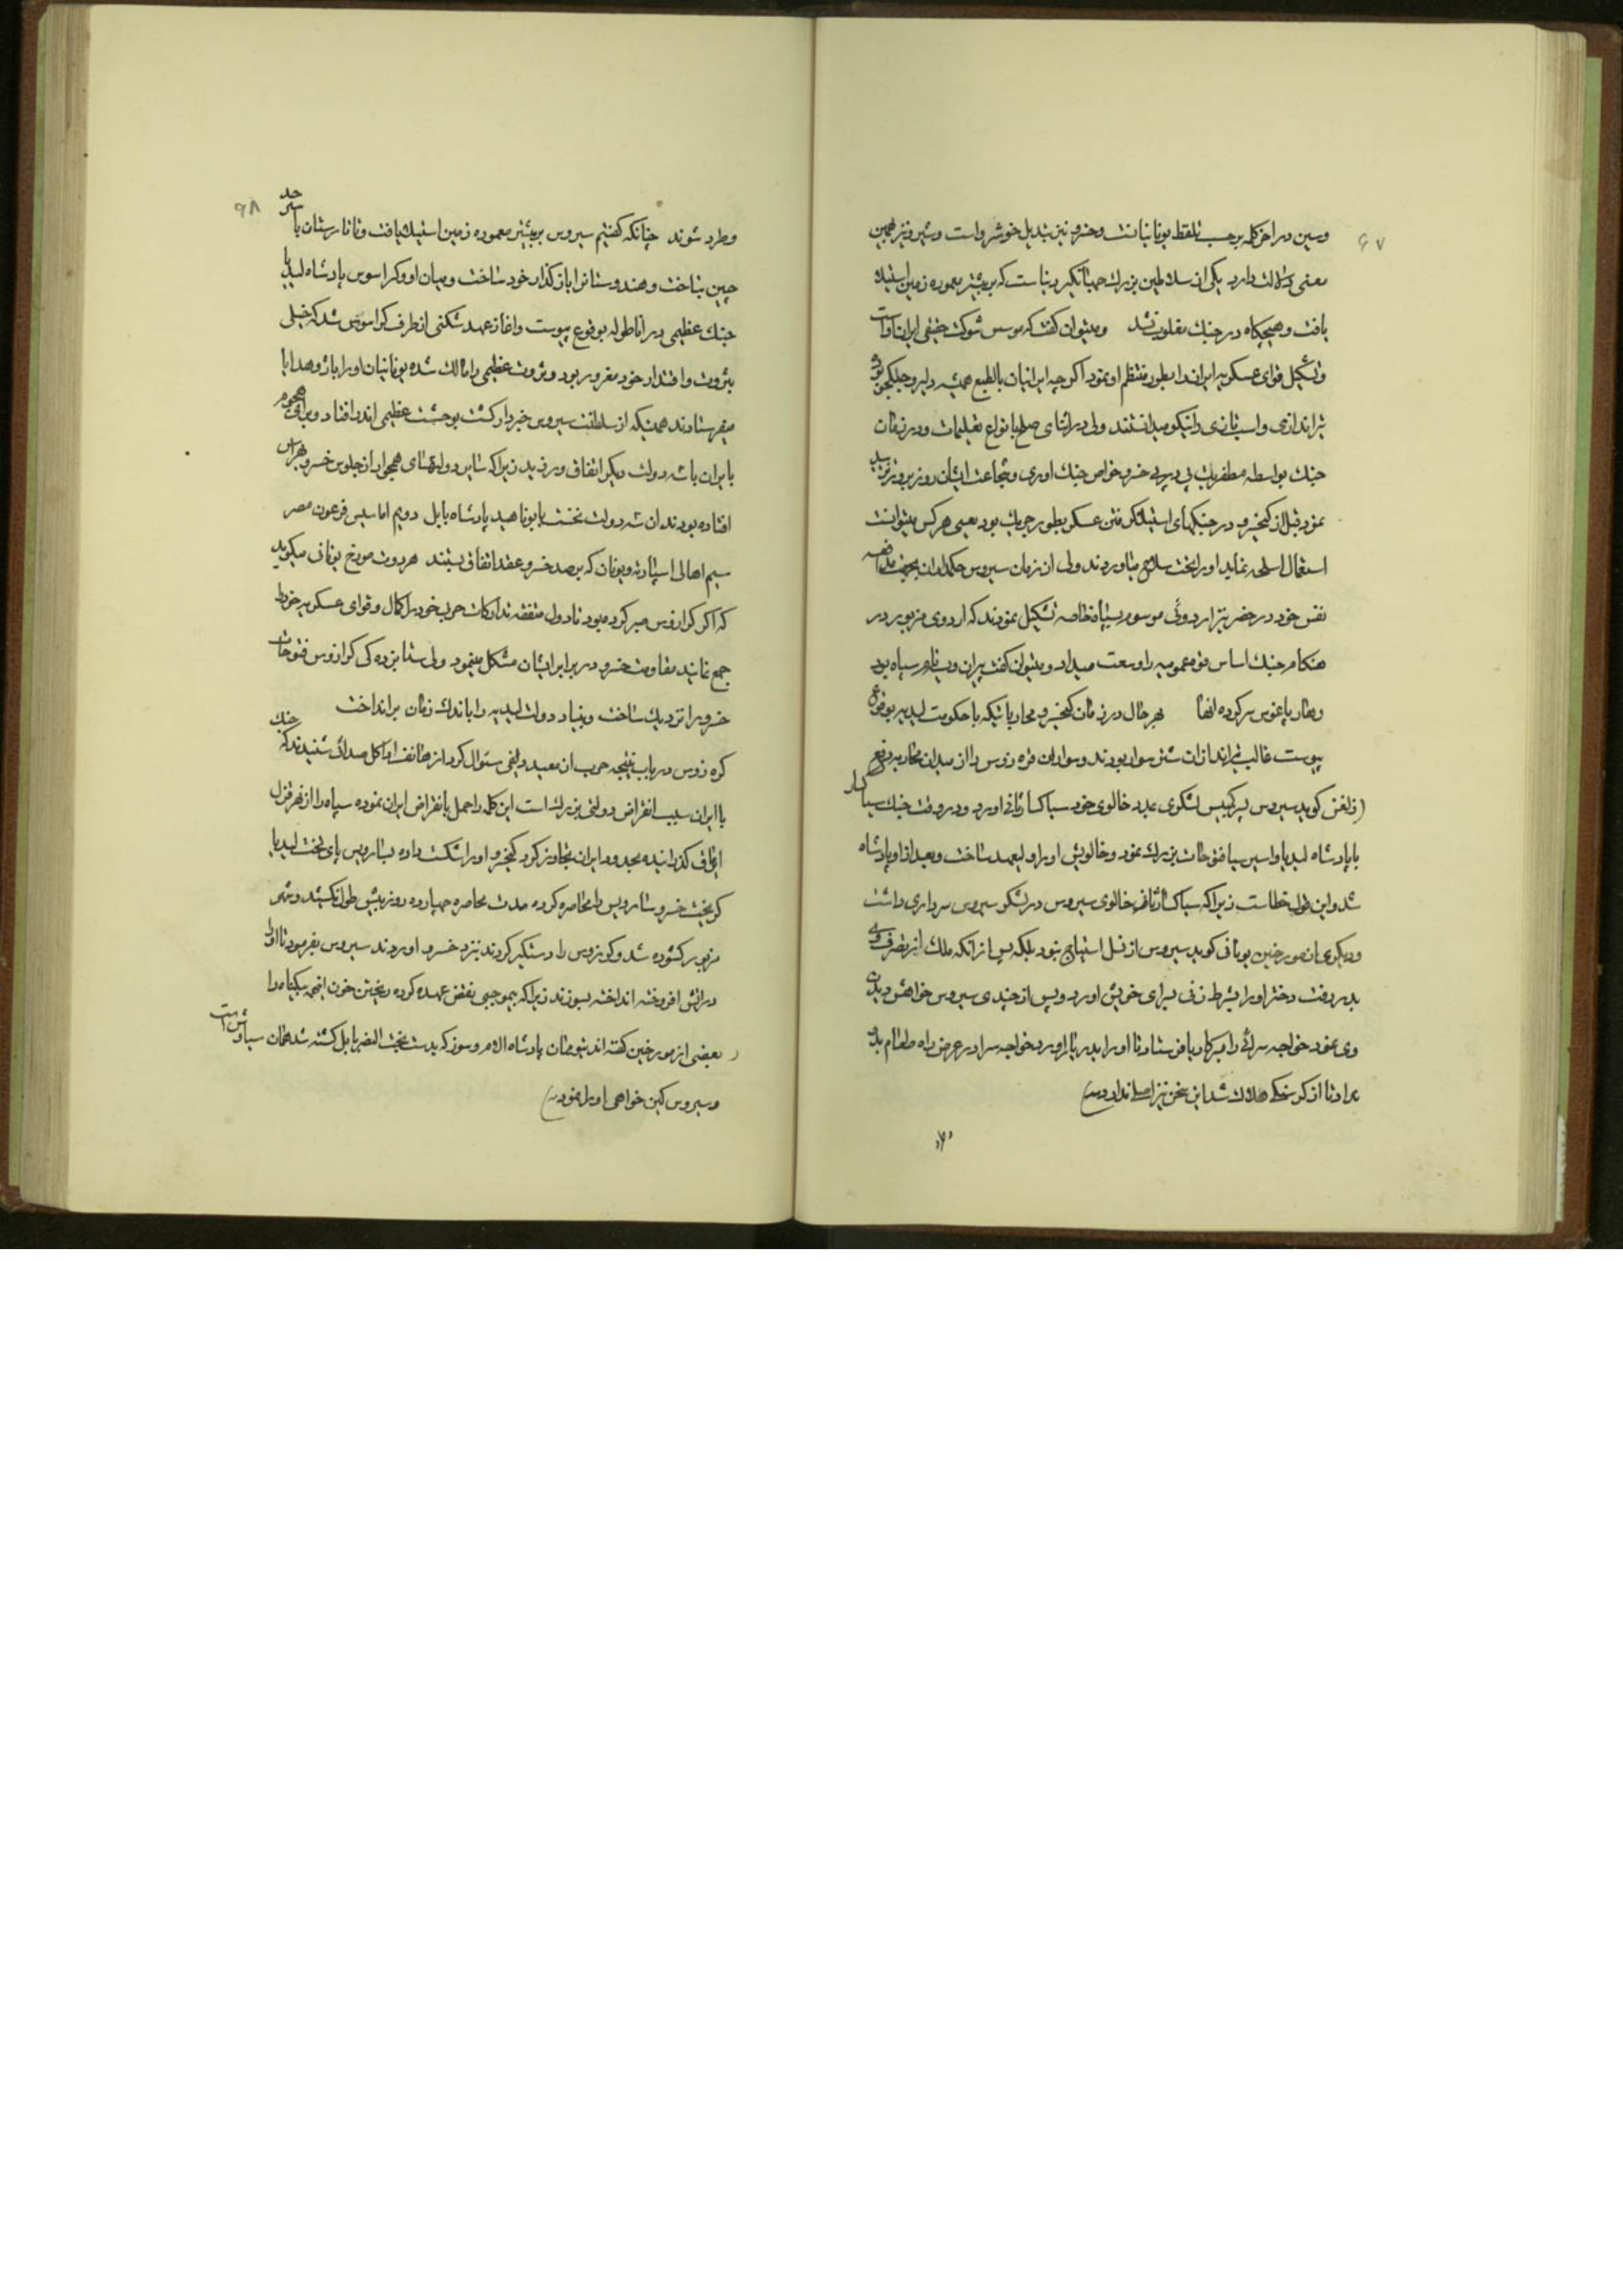 ۶۷
وسین در اخر کلمه برحسب تلفظ یونانیانست وخسرو نیز بتدیل خوشرواست وشیرو نیز همین
معنی دلالت دارد یکی از سلاطین بزرك جهانگیر دنیا ست که بر بیشتر معموره زمین استیلا
یافت وهیچگاه در جنك مغلوب نشد ومیتوان گفت که موسس شوکت حقیقی ایران اواست
وتشکیل قوای عسکریه ایرانرا بطور منتظم او نمود اگر چه ایرانیان بالطبع همیشه دلیر وجنگجوی
تیراندازی واسب تازی را نیکو میدانستند ولی در اثنای صلح بانواع تعلیمات ودر زمان
جنك بواسطه مظفریت پی در پی خسرو خواص جنك اوری وشجاعت ایشان روز بروز
نمود قبل از کیخسرو در جنگهای استیلاگر فتن عسکر بطور چریك بود یعنی هر کس میتوانست
استعمال اسلحه نماید اورا بتحت سلاح میاوردند ولی از زمان سیروس حکمداران بجهت مدافعه
نفس خود در حضر نیز اردوئی موسوم بسپاه خاصه تشکیل نمودند که اردوی مزبور در
هنگام جنك اساس قوه عمومیه را وسعت میداد ومیتوان گفت پیران ویسه نامور سپاه بود
وهارپاغوس سرکرده انها بهر حال در زمان کیخسرو محارباتیکه با حکومت لیدیه بوقوع
پیوست غالب تیراندازان شتر سوار بودند وسواران قره زوس را از میدان محاربه دفع
(زلفن گوید سیروس پسر کمبیس لشگری بمدد خالوی خود سیاکسار ثانی اورد ودر وقت جنك سیاکسار
با پادشاه لیدیا واسیریا فتوحات بزرك نمود وخالویش اورا ولیعهد ساخت وبعد از او پادشاه
شد واین قول خطاست زیرا که سیاکسار ثانی خالوی سیروس در لشگر سیروس سرداری داشت
ودیگری از مورخین یونانی گوید سیروس از نسل استیاج نبود بلکه پس از انکه ملك از تصرف وی
بدر رفت دختر اورا بشرط زنی برای خویش اورد وپس از چندی سیروس خواهش دیدن
وی نمود خواجه سرائی را بپرکار یا فرستاد تا اورا بدربار اورد خواجه سرا در عرض راه طعام بدو
نداد تا از گرسنگی هلاك شد این سخن نیز اصلی ندارد)
۶۸
وطرد شوند چنانکه گفتیم سیروس بر بیشتر معموره زمین استیلا یافت وتا تارستان با سرحد
چین بتاخت وهندوستانرا باز گذار خود ساخت ومیان او وکراسوس پادشاه لیدیا
جنك عظیمی در اناطولی بوقوع پیوست واغاز عهد شکنی از طرف کراسوس شد که خیلی
بثروت واقتدار خود مغرور بود وثروت عظیمی را مالك شده یونانیان اورا باژ وهدایا
میفرستادند همینکه از سلطنت سیروس خبردار گشت بوحشت عظیمی اندر افتاد وبرای هجوم
بایران با سه دولت دیگر اتفاق ورزید زیرا که سایر دولتهای همجوار از جلوس خسرو بهراس
افتاده بودند ان سه دولت نخست پابوناهید پادشاه بابل دویم اماسیس فرعون مصر
سیم اهالی اسپارته ویونان که بر ضد خسرو عقد اتفاق بستند هردوت مورخ یونانی میگوید
که اگر کرازوس صبر کرده بود تا دول متفقه تدارکات حرب خود را اکمال وقوای عسکریه خود را
جمع نمایند مقاومت خسرو در برابر ایشان مشکل مینمود ولی شتابزده گی کرازوس فتوحات
خسرو را نزدیك ساخت وبنیاد دولت لیدیه را باندك زمان برانداخت
کره زوس در باب نتیجه حرب از معبد دلفی سئوال کرد از هاتف اوراکل صدائی شنیدند که جنك
با ایران سبب انقراض دولتی بزرك است این کلمه را حمل بانقراض ایران نموده سپاه را از نهر قزل
ایرماق گذرانیده بحدود ایران تجاوز کرد کیخسرو اورا شکست داده بسارویس پای تخت لیدیا
گریخت خسرو سارویس را محاصره کرده مدت محاصره چهارده روز بیش طول نکشید وشهر
مزبور گشوده شد وکره زوس را دستگیر کردند بنزد خسرو اوردند سیروس بفرمود تا اورا
در اتش افروخته انداخته بسوزند زیرا که بیموجبی نقض عهد کرده ریختن خون انهمه بیگناه را
(بعضی از مورخین گفته اند پادشاه الامر وسوز که بدست بخت النصر بابل کشته شد همان سیاوش است
وسیروس کین خواهی اورا نمود)